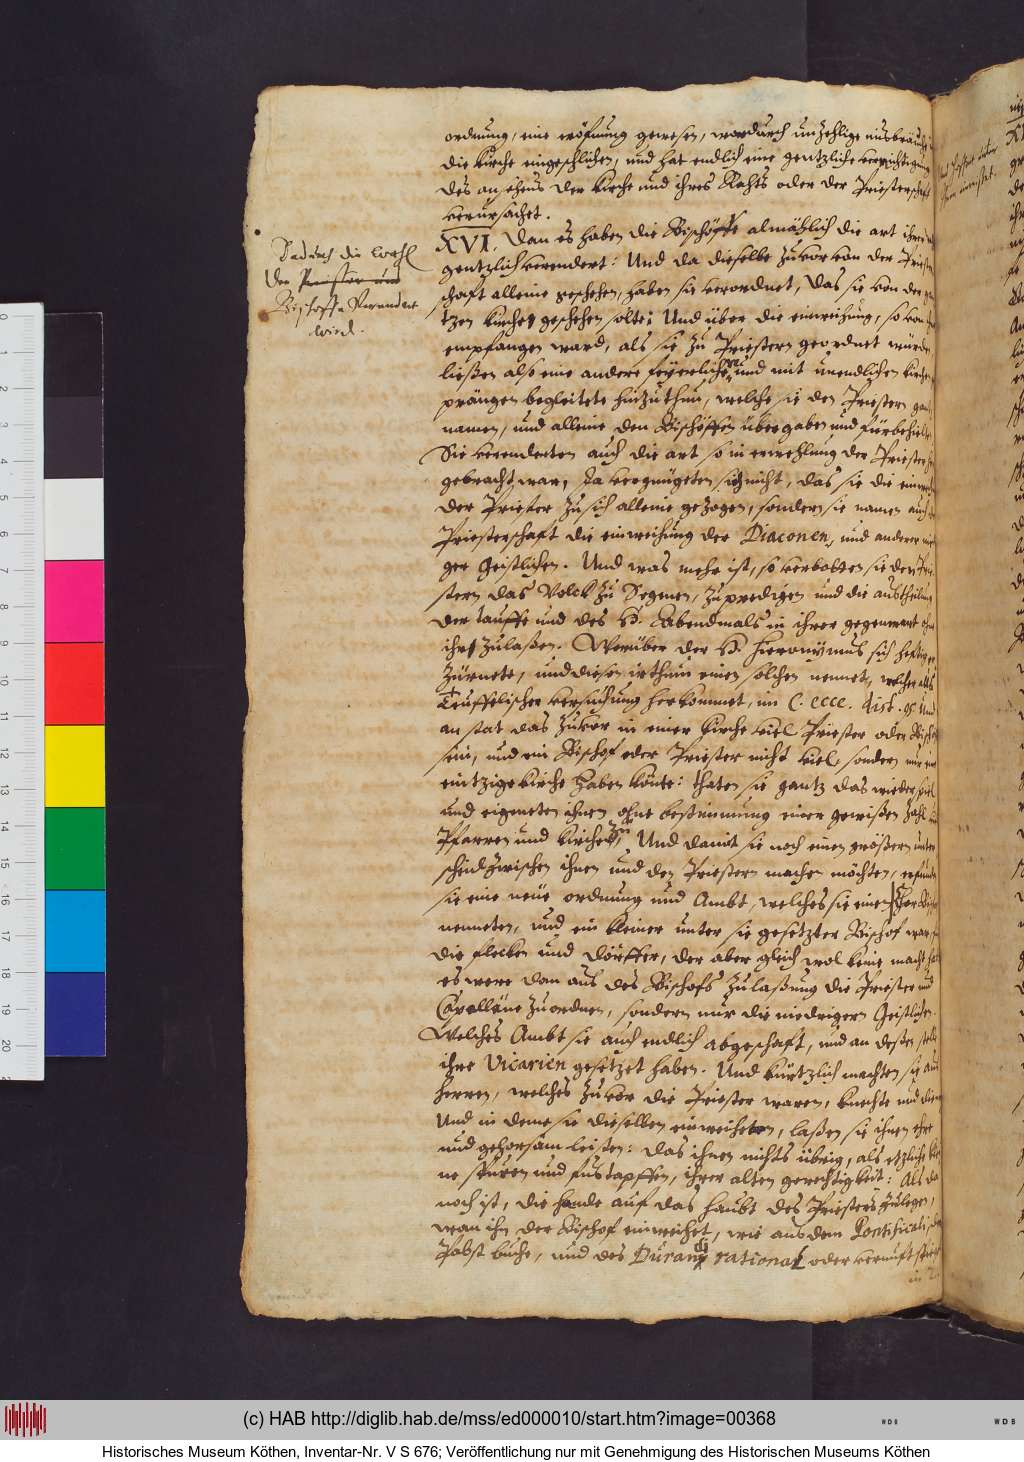 ordnung, eine eröfnung gewesen, wordurch unzehlige misbräuche
die kirche eingeschlichen, und hat endlich eine gentzliche vernichtigung
des ansehens der kirche und ihres Rahts oder der Priesterschaft
verursachet.
Dadurch die wahl
der Priester und
Bischoffe Verendert
wird.
XVI. Dan es haben die Bischöffe almählich die art ihrer
gentzlich verendert: Und da dieselbe zuvor von der Priester
schaft alleine geschehen, haben sie verordnet, das sie von der gan
tzen kirche geschehen solte: Und über die einweihung, so von
empfangen ward, als sie zu Priestern geordnet wurden
ließen also eine andere feyerliche und mit unendlichen kirchen
prängen begleitete hinzuthun, welche sie den Priestern gantz
namen, und alleine den Bischöffen übergaben und fürbehielten
Sie verenderten auch die art so in erwehlung der Priester
gebracht war, Ja vergnügeten sich nicht, das sie die einweihung
der Priester zu sich alleine gezogen, sondern sie namen auch der
Priesterschaft die einweihung der Diaconen, und anderer
ger Geistlichen. Und was mehr ist, so verbotten sie den Prie
stern das Volck zu Segenen, zu predigen und die austheilung
der tauffe und des H. Abendmals in ihrer gegenwart ohne
ihr zulaßen. Worüber der H. Hieronymus sich heftig er
zürnete, und diesen irthum einen solchen nennet, welcher aus
Teuffelischer versuchung herkommet, im C. ecce. dist. 95 Und
an stat das zuvor in einer kirche viel Priester oder Bischof
sein, und ein Bischof oder Priester nicht viel, sondern nur eine
eintzige kirche haben könte: thaten sie gantz das wiederspiel
und eigeneten ihnen ohne bestimmung einer gewißen zahl die
Pfarren und kirchen zu, Und damit sie noch einen größern unter
scheid zwischen ihnen und den Priestern machen möchten, erfunden
sie eine neue ordnung und Ambt, welches sie einen ChorBischof
nenneten, und ein kleiner unter sie gesetzter Bischof war
die flecken und dörffer, der aber gleich wol keine macht hat
es were dan aus des Bischofs zulaßung die Priester und
Capelläne zu ordnen, sondern nur die niedrigern Geistlichen.
Welches Ambt sie auch endlich abgeschaft, und an deßen stelle
ihre Vicarien gesetzet haben. Und kürtzlich machten sie aus
herren, welches zuvor die Priester waren, knechte und diener
Und in deme sie dieselben einweiheten, laßen sie ihnen ehre
und gehorsam leisten: das ihnen nichts übrig, als etzliche klei
ne spuren und fustapffen, ihrer alten gerechtigkeit: Als da
noch ist, die hende auf das haubt des Priesters zulegen,
wan ihn der Bischof einweihet, wie aus dem Pontificalischen
Pabst buche, und des Durandi rational oder vernunft
im 2.
0 1 2 3 4 5 6 7 8 9 10 11 12 13 14 15 16 17 18 19 20
(c) HAB http://diglib.hab.de/mss/ed000010/start.htm?image=00368
WDB
WDB
Historisches Museum Köthen, Inventar-Nr. V S 676; Veröffentlichung nur mit Genehmigung des Historischen Museums Köthen